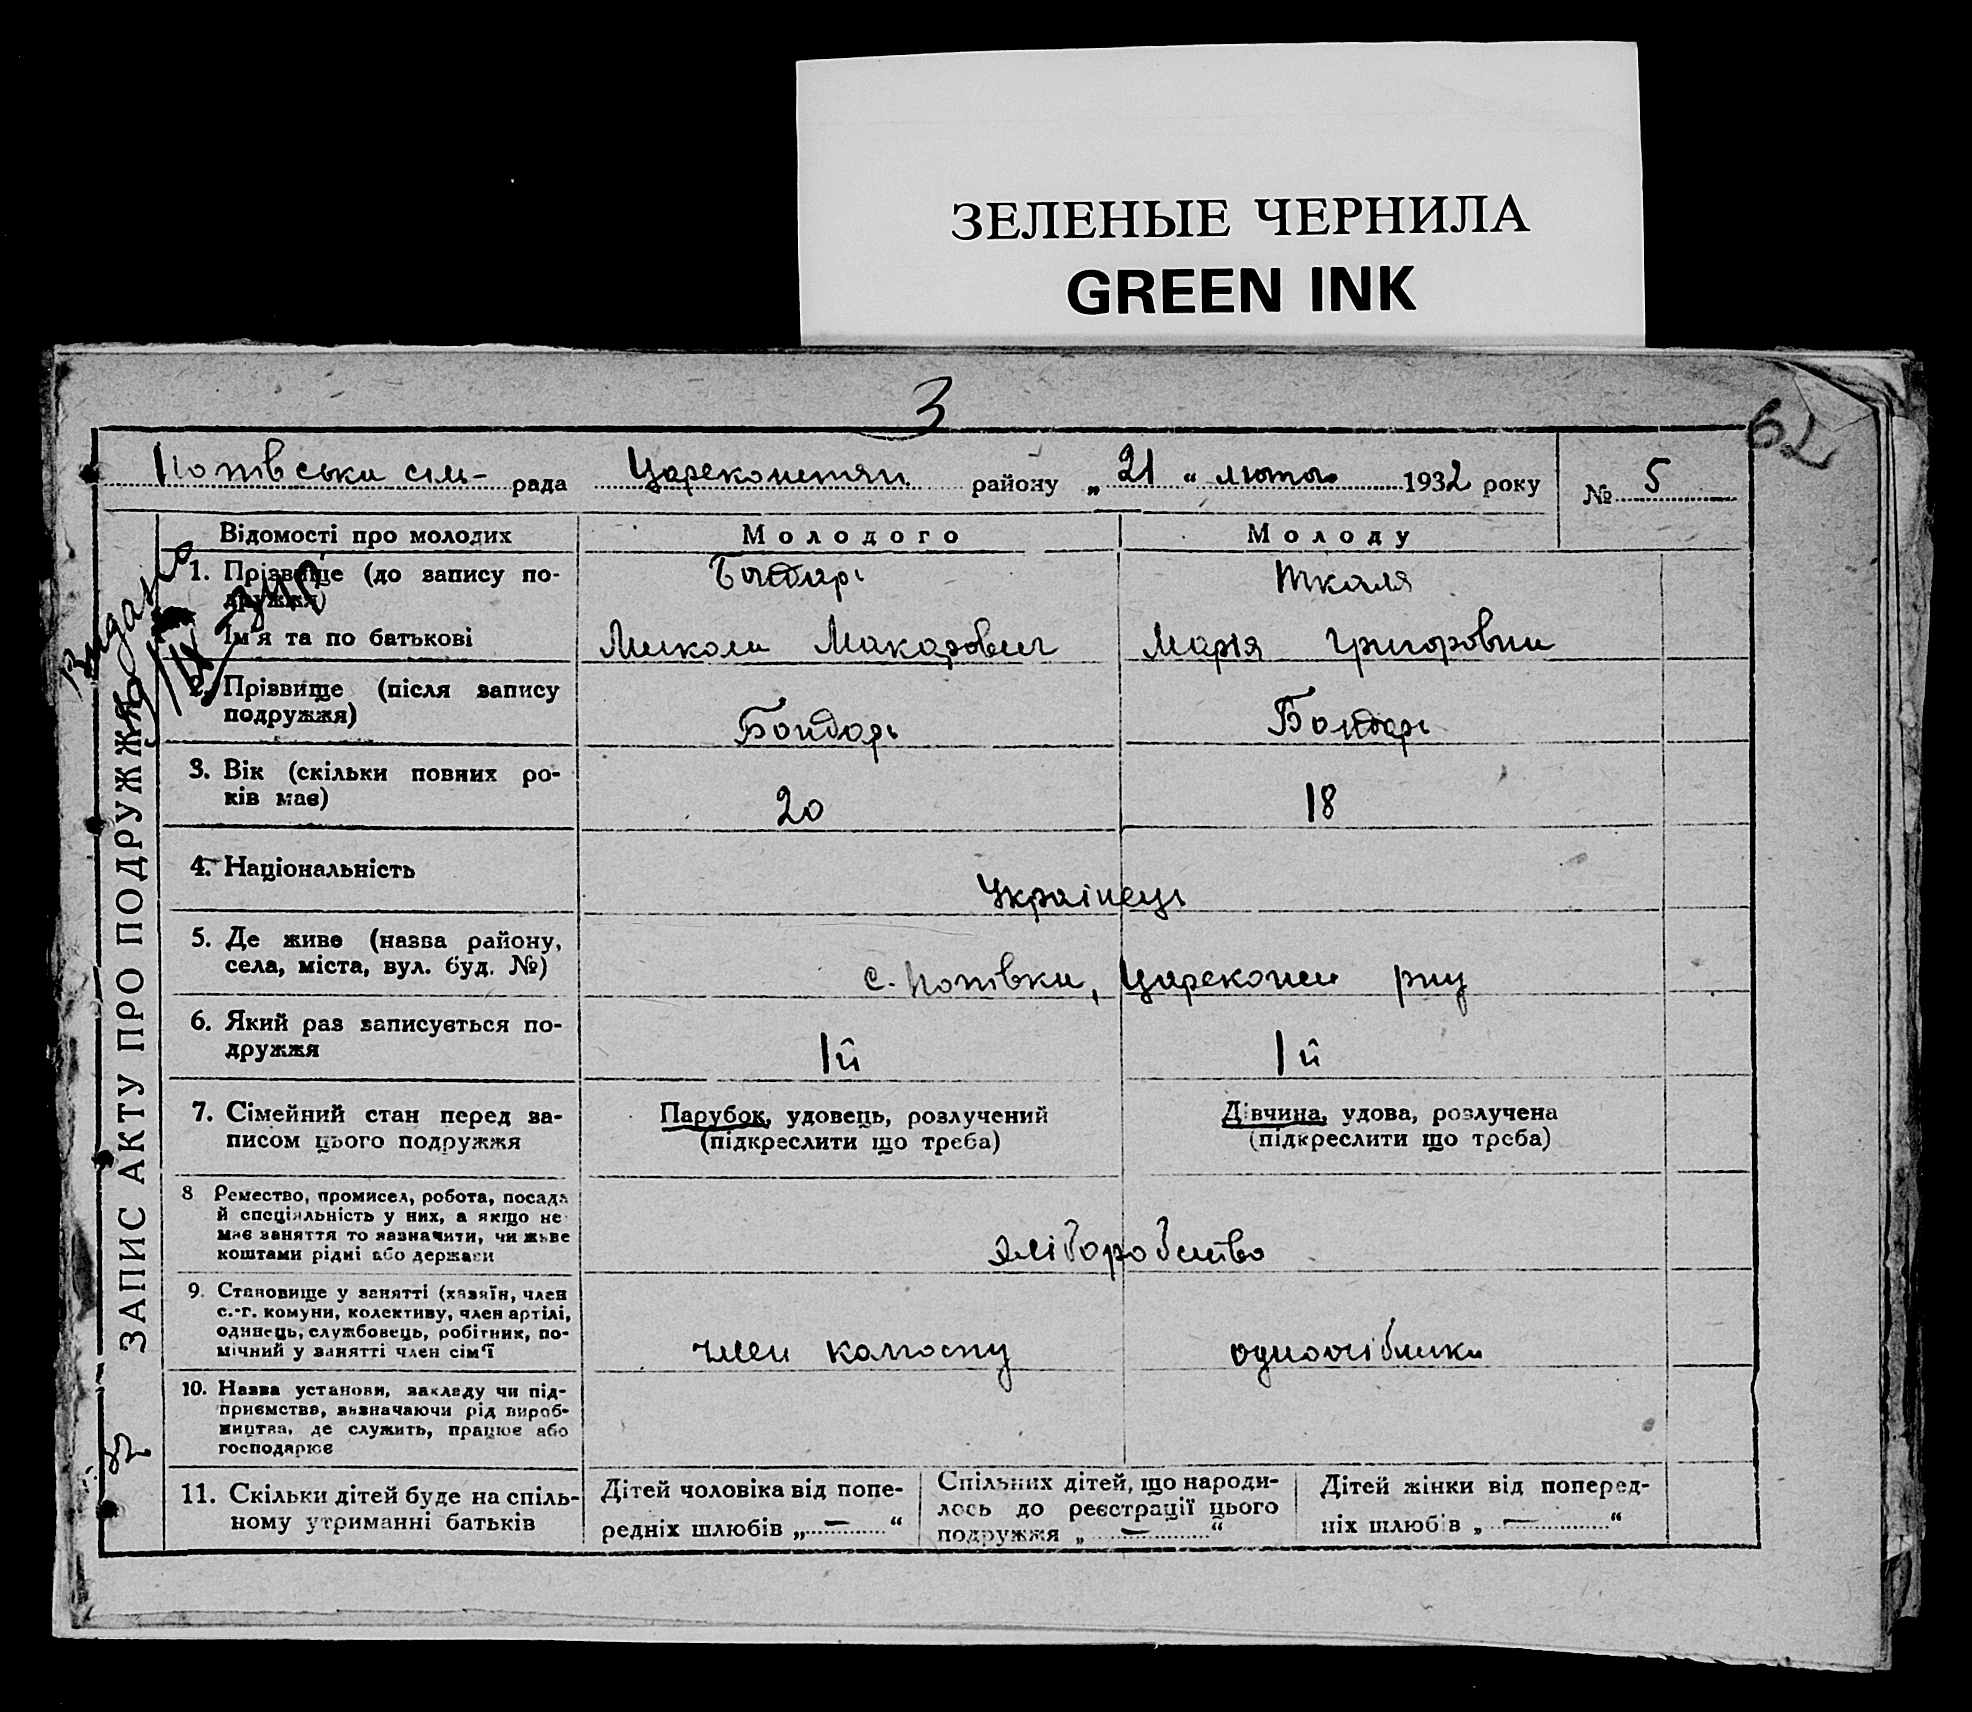 ЗЕЛЕНЫЕ ЧЕРНИЛА
GREEN INK
3
62
Попівська сіль- рада Цареконстян району „ 21 “ лютого 1932 року № 5
ЗАПИС АКТУ ПРО ПОДРУЖЖЯ
Видано
Відомості про молодих Молодого Молоду
1. Прізвище (до запису по- Бондарь Ткаля
дружжя)
Ім'я та по батькові Микола Макарович Марія Григоровна
2. Прізвище (після запису
подружжя) Бондарь Бондарь
3. Вік (скільки повних ро-
ків має) 20 18
4. Національність Українець
5. Де живе (назва району,
села, міста, вул. буд. №) с. Попівка, Цареконс рну
6. Який раз записується по-
дружжя 1й 1й
7. Сімейний стан перед за- Парубок, удовець, розлучений Дівчина, удова, розлучена
писом цього подружжя (підкреслити що треба) (підкреслити що треба)
8 Ремество, промисел, робота, посада
й спеціяльність у них, а якщо не
має заняття то зазначити, чи живе
коштами рідні або держави хліборобство
9. Становище у занятті (хазяїн, член
с.-г. комуни, колективу, член артілі,
одинець, службовець, робітник, по-
мічний у занятті член сім'ї член колгоспу одноосібника
10. Назва установи, закладу чи під-
приємства, визначаючи рід вироб-
ництва, де служить, працює або
господарює
11. Скільки дітей буде на спіль-
ному утриманні батьків
Дітей чоловіка від попе-
редніх шлюбів „ — “
Спільних дітей, що народи-
лось до реєстрації цього
подружжя „ — “
Дітей жінки від поперед-
ніх шлюбів „ — “